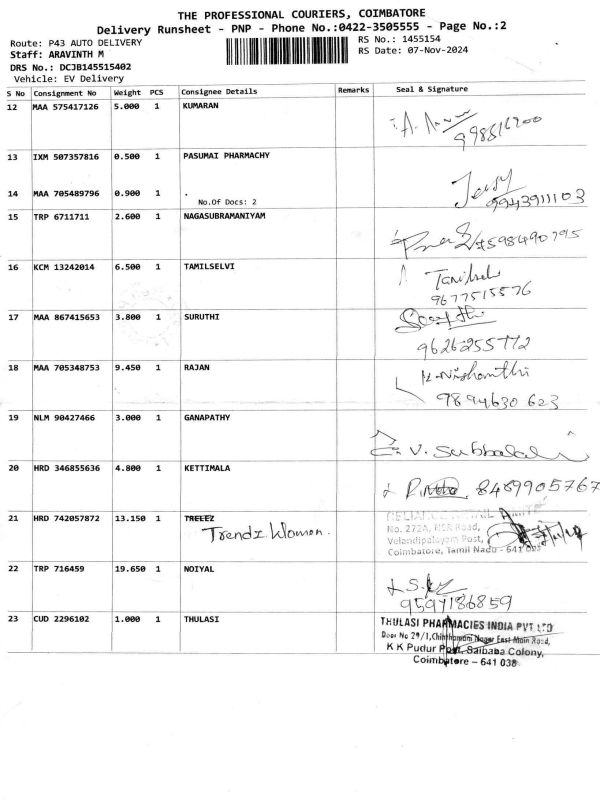 THE PROFESSIONAL COURIERS, COIMBATORE
Delivery Runsheet - PNP - Phone No.:0422-3505555 - Page No.:2
Route: P43 AUTO DELIVERY
RS No.: 1455154
Staff: ARAVINTH M
RS Date: 07-Nov-2024
DRS No.: DCJB145515402
Vehicle: EV Delivery
S No Consignment No Weight PCS Consignee Details Remarks Seal & Signature
12 MAA 575417126 5.000 1 KUMARAN
13 IXM 507357816 0.500 1 PASUMAI PHARMACHY
14 MAA 705489796 0.900 1 .
No.Of Docs: 2
9943911103
15 TRP 6711711 2.600 1 NAGASUBRAMANIYAM
7598490795
16 KCM 13242014 6.500 1 TAMILSELVI
9677515576
17 MAA 867415653 3.800 1 SURUTHI
9626255772
18 MAA 705348753 9.450 1 RAJAN
K. Nishanthi
9894630623
19 NLM 90427466 3.000 1 GANAPATHY
V. Subbalakshmi
20 HRD 346855636 4.800 1 KETTIMALA
8489905767
21 HRD 742057872 13.150 1 TRELEZ
Trendz Woman.
No. 272A, NSR Road,
Velandipalayam Post,
Coimbatore, Tamil Nadu - 641 025
22 TRP 716459 19.650 1 NOIYAL
9597186859
23 CUD 2296102 1.000 1 THULASI
THULASI PHARMACIES INDIA PVT LTD
Door No 29/1, Chinthamani Nagar East Main Road,
K K Pudur Post, Saibaba Colony,
Coimbatore - 641 038